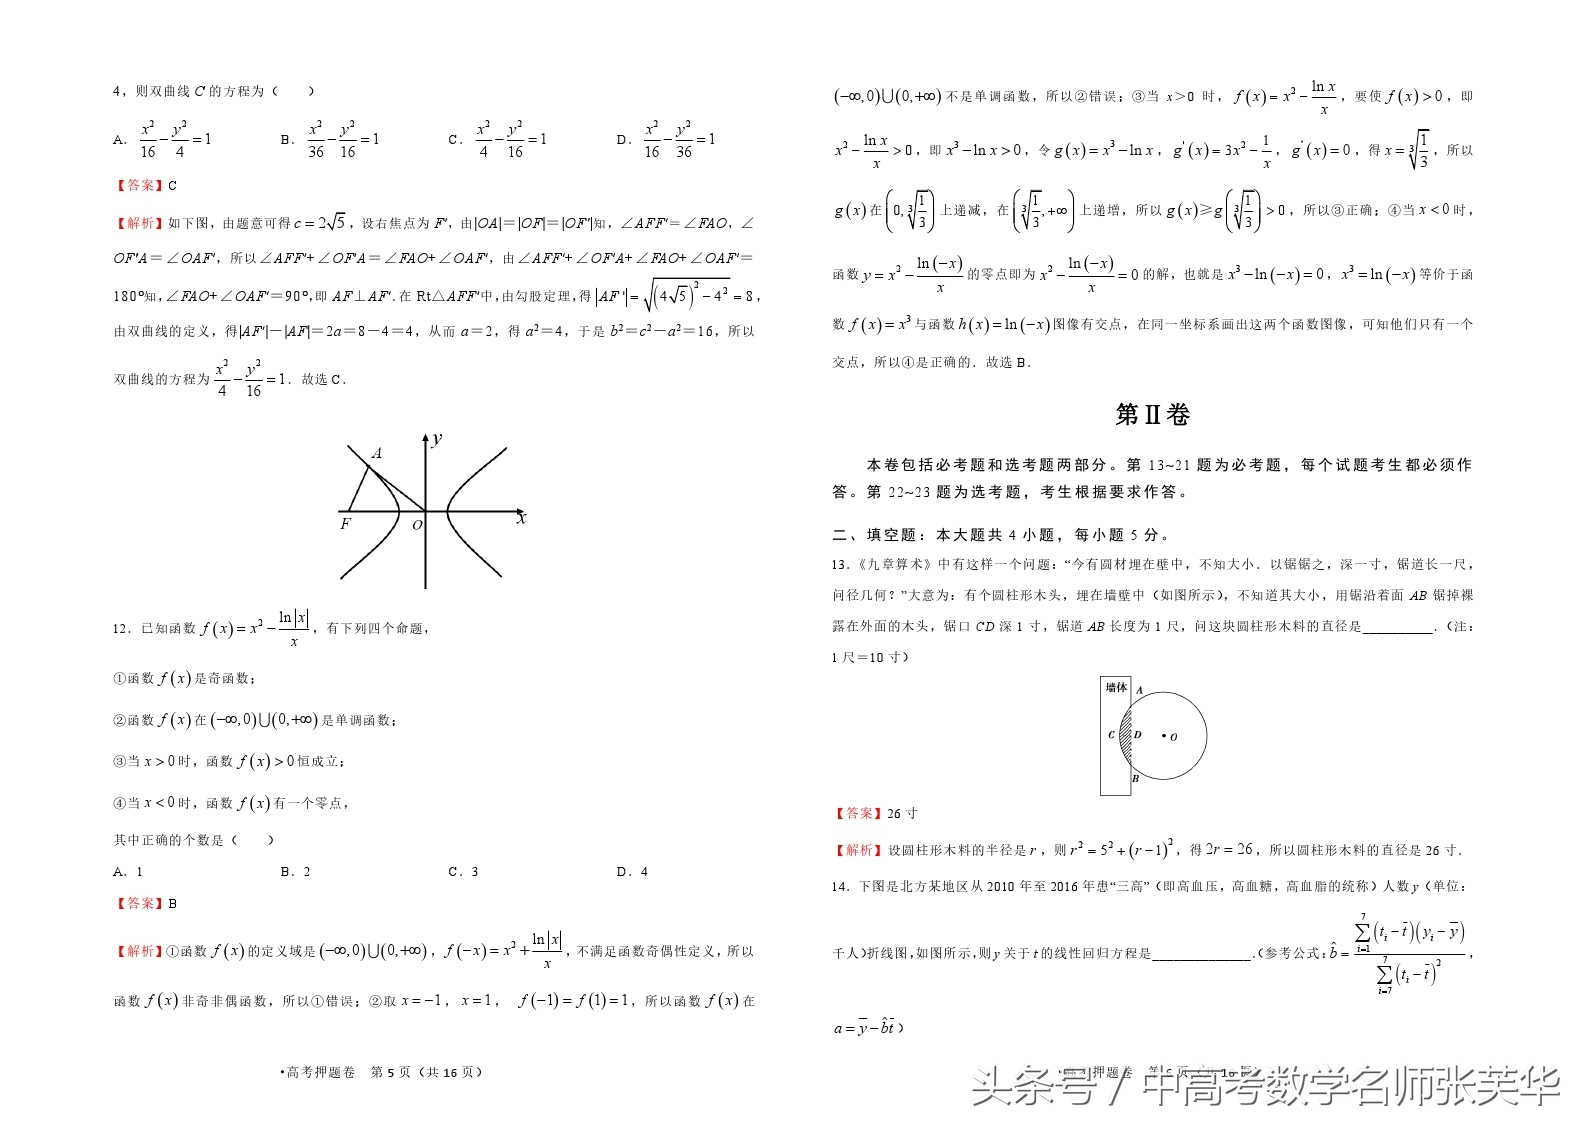 4，则双曲线 C 的方程为（　　）
A．x²/16 − y²/4 = 1　B．x²/36 − y²/16 = 1　C．x²/4 − y²/16 = 1　D．x²/16 − y²/36 = 1
【答案】C
【解析】如下图，由题意可得 c = 2√5，设右焦点为 F′，由|OA|＝|OF|＝|OF′|知，∠AFF′＝∠FAO，∠
OF′A＝∠OAF′，所以∠AFF′+∠OF′A＝∠FAO+∠OAF′，由∠AFF′+∠OF′A+∠FAO+∠OAF′＝
180°知，∠FAO+∠OAF′＝90°，即 AF⊥AF′．在 Rt△AFF′中，由勾股定理，得 |AF′| = √((4√5)² − 4²) = 8，
由双曲线的定义，得|AF′|－|AF|＝2a＝8－4＝4，从而 a＝2，得 a²＝4，于是 b²＝c²－a²＝16，所以
双曲线的方程为 x²/4 − y²/16 = 1．故选 C．
y
A
F
O
x
12．已知函数 f(x) = x² − ln|x|/x，有下列四个命题，
①函数 f(x) 是奇函数；
②函数 f(x) 在 (−∞,0)∪(0,+∞) 是单调函数；
③当 x > 0 时，函数 f(x) > 0 恒成立；
④当 x < 0 时，函数 f(x) 有一个零点，
其中正确的个数是（　　）
A．1　B．2　C．3　D．4
【答案】B
【解析】①函数 f(x) 的定义域是 (−∞,0)∪(0,+∞)，f(−x) = x² + ln|x|/x，不满足函数奇偶性定义，所以
函数 f(x) 非奇非偶函数，所以①错误；②取 x = −1，x = 1， f(−1) = f(1) = 1，所以函数 f(x) 在
•高考押题卷　第 5 页（共 16 页）
(−∞,0)∪(0,+∞) 不是单调函数，所以②错误；③当 x＞0 时，f(x) = x² − ln x/x，要使 f(x) > 0，即
x² − ln x/x > 0，即 x³ − ln x > 0，令 g(x) = x³ − ln x，g′(x) = 3x² − 1/x，g′(x) = 0，得 x = ∛(1/3)，所以
g(x) 在 (0, ∛(1/3)) 上递减，在 (∛(1/3), +∞) 上递增，所以 g(x) ≥ g(∛(1/3)) > 0，所以③正确；④当 x < 0 时，
函数 y = x² − ln(−x)/x 的零点即为 x² − ln(−x)/x = 0 的解，也就是 x³ − ln(−x) = 0，x³ = ln(−x) 等价于函
数 f(x) = x³ 与函数 h(x) = ln(−x) 图像有交点，在同一坐标系画出这两个函数图像，可知他们只有一个
交点，所以④是正确的．故选 B．
第Ⅱ卷
本卷包括必考题和选考题两部分。第 13~21 题为必考题，每个试题考生都必须作
答。第 22~23 题为选考题，考生根据要求作答。
二、填空题：本大题共 4 小题，每小题 5 分。
13．《九章算术》中有这样一个问题：“今有圆材埋在壁中，不知大小．以锯锯之，深一寸，锯道长一尺，
问径几何？”大意为：有个圆柱形木头，埋在墙壁中（如图所示），不知道其大小，用锯沿着面 AB 锯掉裸
露在外面的木头，锯口 CD 深 1 寸，锯道 AB 长度为 1 尺，问这块圆柱形木料的直径是__________．（注：
1 尺＝10 寸）
墙体 A
C D O
B
【答案】26 寸
【解析】设圆柱形木料的半径是 r，则 r² = 5² + (r−1)²，得 2r = 26，所以圆柱形木料的直径是 26 寸．
14．下图是北方某地区从 2010 年至 2016 年患“三高”（即高血压，高血糖，高血脂的统称）人数 y（单位：
千人）折线图，如图所示，则 y 关于 t 的线性回归方程是______________．（参考公式：b̂ = ∑_{i=1}^{7}(tᵢ − t̄)(yᵢ − ȳ) / ∑_{i=7}^{7}(tᵢ − t̄)²，
a = ȳ − b̂t̄）
头条号 / 中高考数学名师张芙华